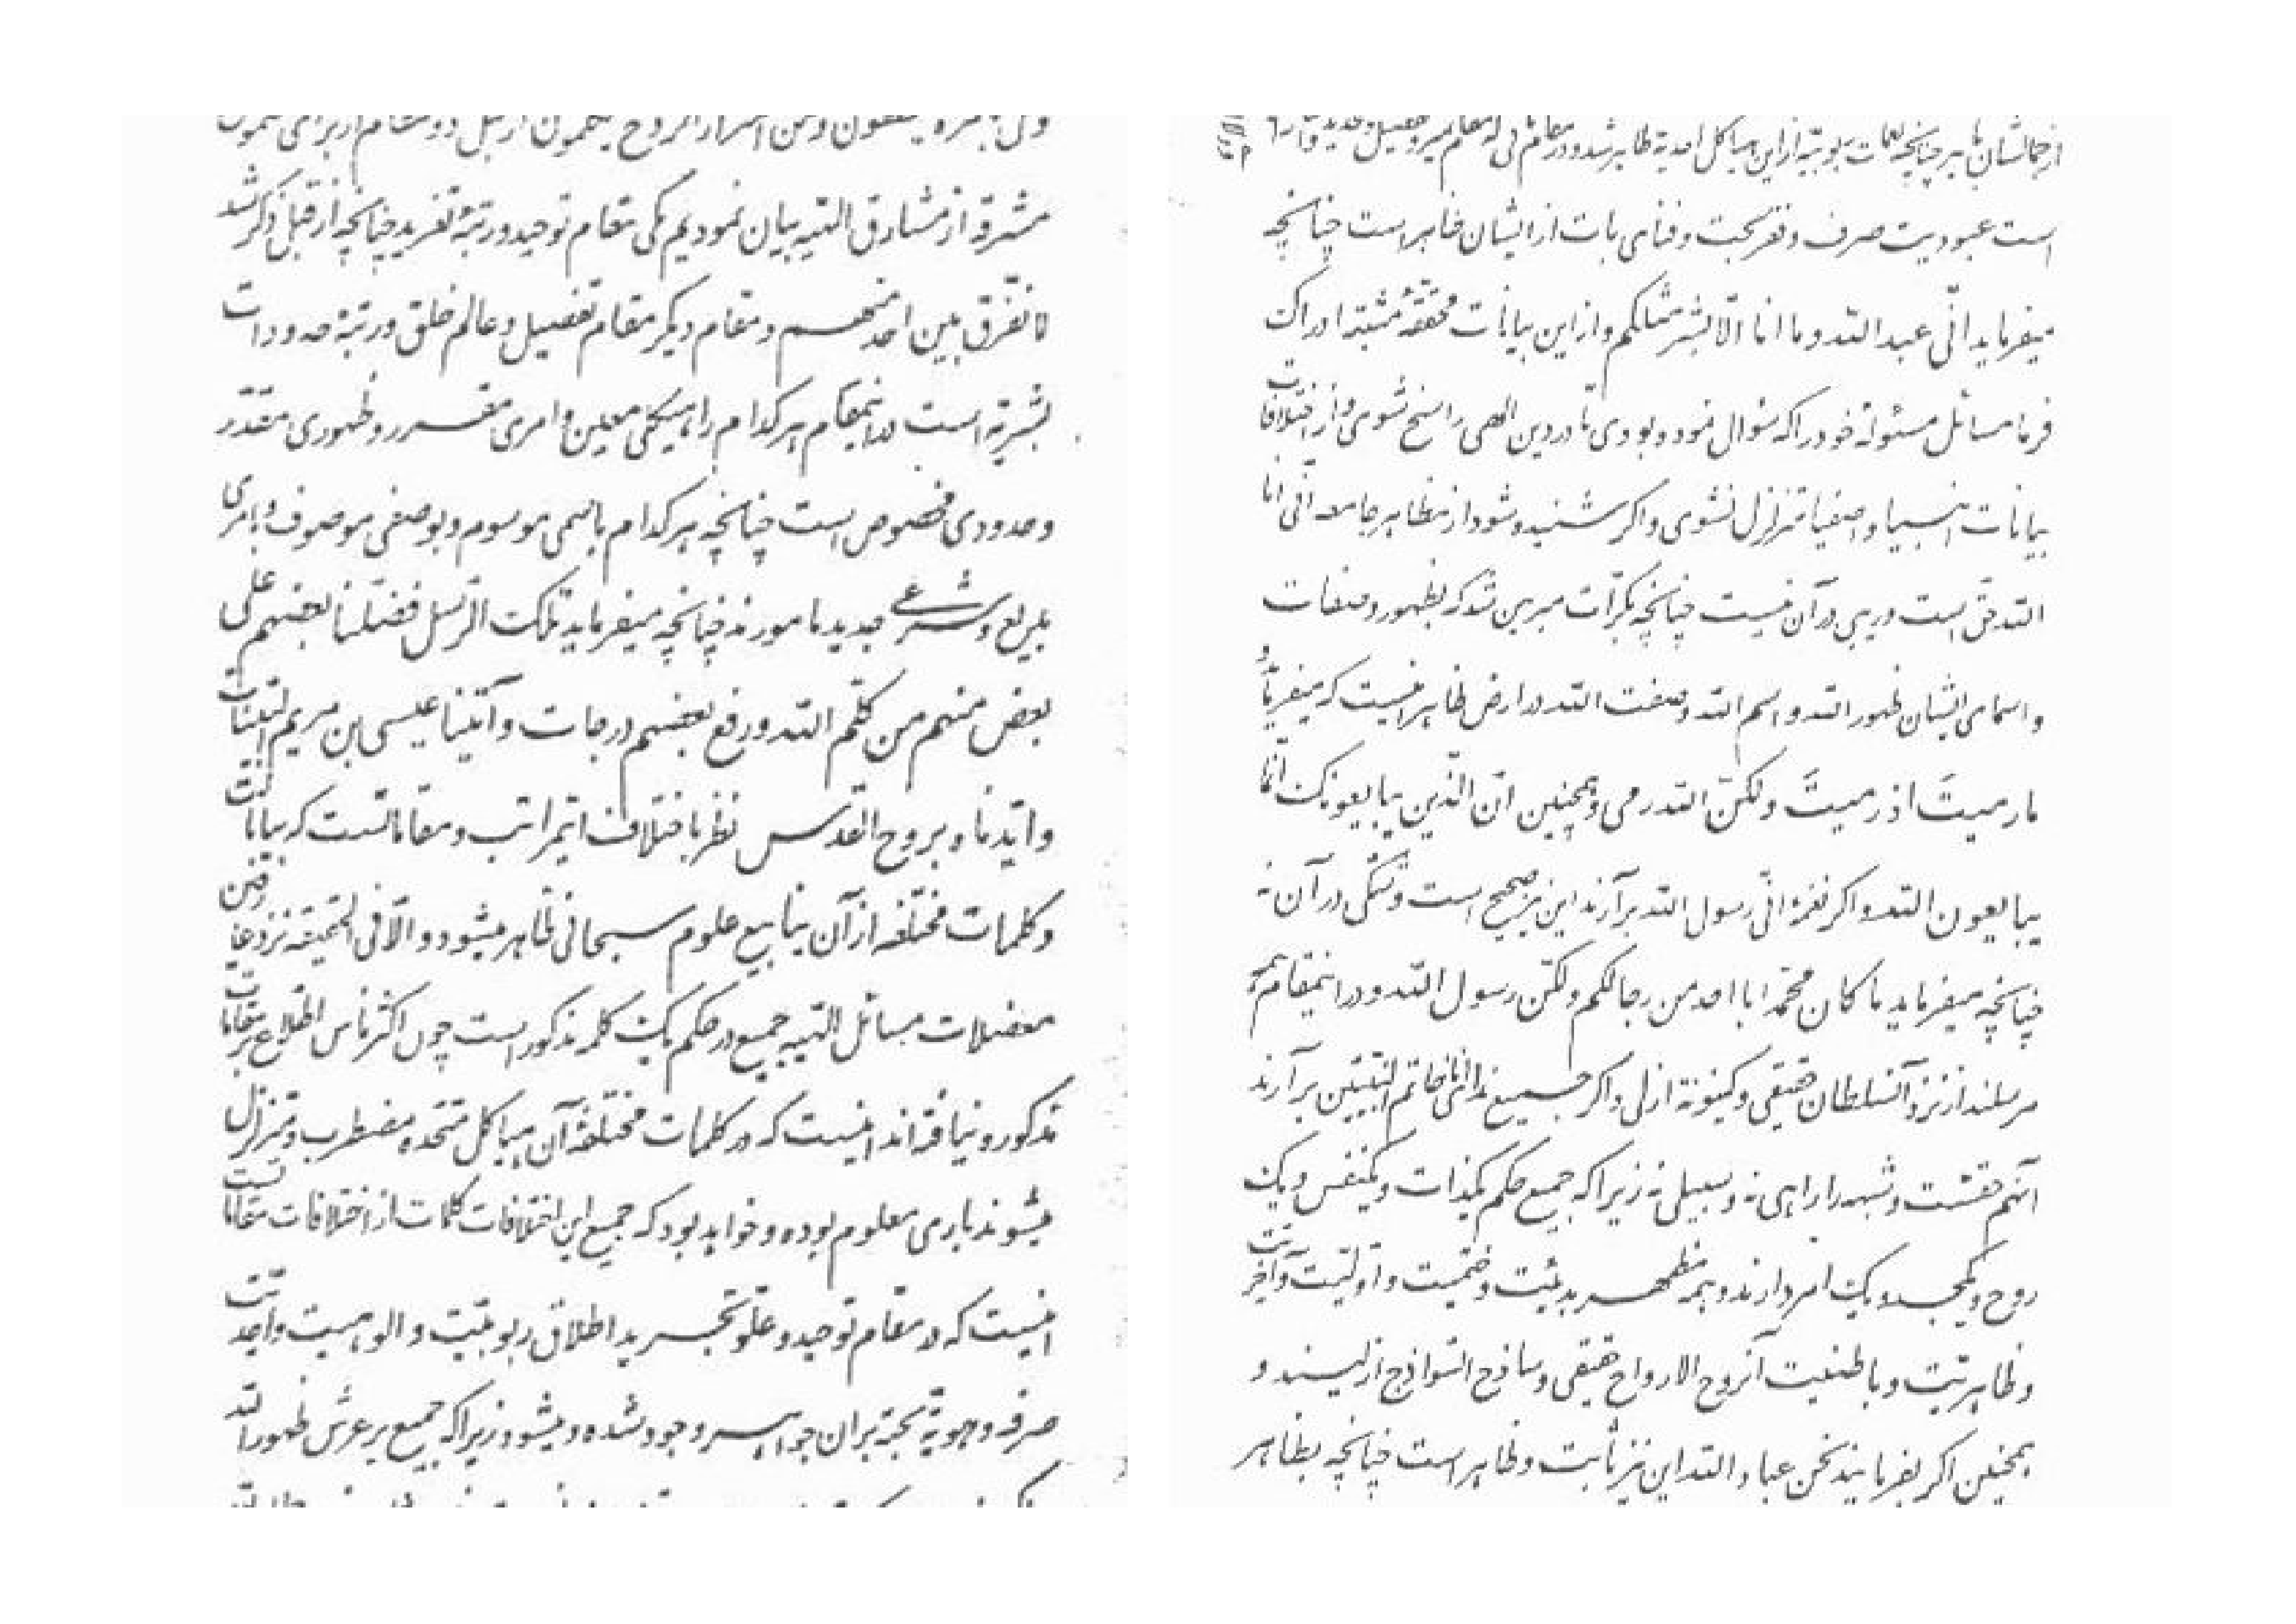 مشرقه از مشارق الهیه بیان نمودیم یکی مقام توحید و رتبهٔ تفرید چنانچه از قبل ذکر شد
لا نفرّق بین احد منهم و مقام دیگر مقام تفصیل و عالم خلق و رتبهٔ حدودات
بشریّه است در اینمقام هر کدام را هیکلی معین و امری مقرر و ظهوری مقدّر
و حدودی مخصوص است چنانچه هر کدام باسمی موسوم و بوصفی موصوف و بامری
بدیع و شرعی جدید مامورند چنانچه میفرماید تلک الرّسل فضّلنا بعضهم علی
بعض منهم من کلّم الله و رفع بعضهم درجات و آتینا عیسی بن مریم البیّنات
و ایّدناه بروح القدس نظر باختلاف این مراتب و مقاماتست که بیانات
و کلمات مختلفه از آن ینابیع علوم سبحانی ظاهر میشود و الّا فی الحقیقه نزد عارفین
معضلات مسائل الهیه جمیع در حکم یک کلمه مذکور است چون اکثر ناس اطلاع بر مقامات
مذکوره نیافته‌اند اینست که در کلمات مختلفهٔ آن هیاکل متحده مضطرب و متزلزل
میشوند باری معلوم بوده و خواهد بود که جمیع این اختلافات کلمات از اختلافات مقاماتست
اینست که در مقام توحید و علوّ تجرید اطلاق ربوبیّت و الوهیت و احدیّت
صرفه و هویّهٔ بحته بر آن جواهر وجود شده و میشود زیرا که جمیع بر عرش ظهور الله
از جمالشان ظاهر چنانچه نغمات ربوبیّه از این هیاکل احدیه ظاهر شد و در مقام ثانی که مقام تمیز و تفصیل و تحدید و اشارات
است عبودیت صرف و فقر بحت و فنای بات از ایشان ظاهر است چنانچه
میفرماید انّی عبد الله و ما انا الّا بشر مثلکم و از این بیانات محققهٔ مثبته ادراک
فرما مسائل مسئولهٔ خود را که سؤال نموده بودی تا در دین الهی راسخ شوی و از اختلافات
بیانات انبیا و اصفیا متزلزل نشوی و اگر شنیده شود از مظاهر جامعه انّی انا
الله حق است و ریبی در آن نیست چنانچه بکرّات مبرهن شد که بظهور و صفات
و اسمای ایشان ظهور الله و اسم الله و صفت الله در ارض ظاهر اینست که میفرماید و
ما رمیتَ اذ رمیتَ ولکنّ الله رمی و همچنین انّ الّذین یبایعونک انّما
یبایعون الله و اگر نغمهٔ انّی رسول الله برآرند این نیز صحیح است و شکّی در آن نه
چنانچه میفرماید ما کان محمّد ابا احد من رجالکم ولکن رسول الله و در اینمقام همه
مرسلند از نزد آنسلطان حقیقی و کینونة ازلی و اگر جمیع ندای انا خاتم النّبیّین برآرند
آنهم حقست و شبهه را راهی نه و سبیلی نه زیرا که جمیع حکم یکذات و یکنفس و یک
روح و یکجسد و یک امر دارند و همه مظهر بدئیّت و ختمیّت و اوّلیّت و آخریّت
و ظاهریّت و باطنیّت آنروح الارواح حقیقی و ساذج السّواذج ازلیند و
همچنین اگر بفرمایند نحن عباد الله این نیز ثابت و ظاهر است چنانچه بظاهر